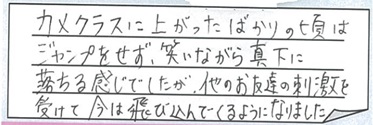 カメクラスに上がったばかりの頃は
ジャンプをせず、笑いながら真下に
落ちる感じでしたが、他のお友達の刺激を
受けて今は飛び込んでくるようになりました